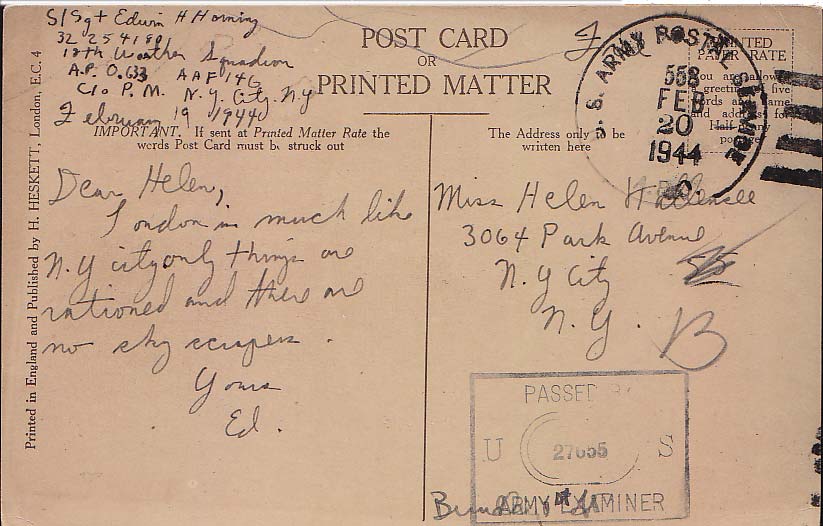 S/Sgt Edwin H Horning
32254180
18th Weather Squadron
A.P.O. 633 AAF 146
C/o P.M. N.Y. City N.Y
February 19 1944
POST CARD
OR
PRINTED MATTER
IMPORTANT. If sent at Printed Matter Rate the
words Post Card must be struck out
Dear Helen,
London is much like
N.Y city only things are
rationed and there are
no sky scrapers.
Yours
Ed.
Printed in England and Published by H. HESKETT, London, E.C. 4
F
U. S. ARMY POSTAL SERVICE
558
FEB
20
1944
PRINTED
PAPER RATE
You are allowed
a greeting of five
words and name
and address for
Half
The Address only to be
written here
Miss Helen
3064 Park Avenue
N. Y City
N. Y.
B
PASSED BY
U S
ARMY EXAMINER